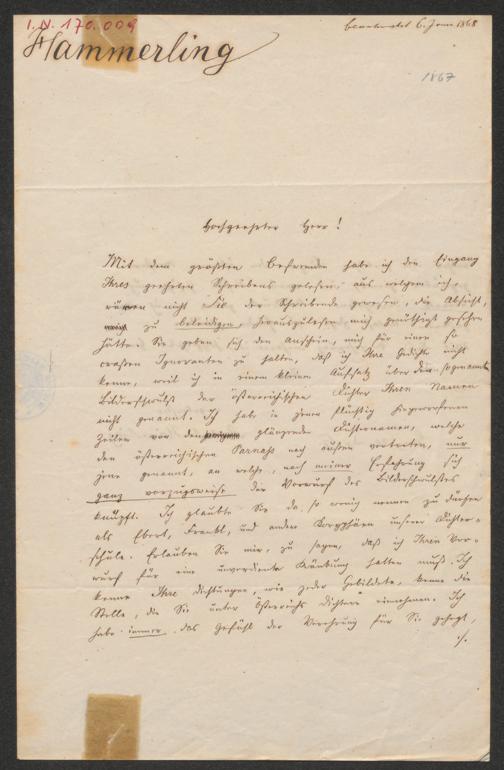 I.N. 170.009
beantwortet 6. Jänn 1868
Hammerling
1867
Hochgeehrter Herr!
Mit dem größten Befremden habe ich den Eingang
Ihres geehrten Schreibens gelesen, aus welchem ich,
wären nicht Sie der Schreibende gewesen, die Absicht,
mich zu beleidigen, herauszulesen mich genöthigt gesehen
hätte. Sie geben sich den Anschein, mich für einen so
crassen Ignoranten zu halten, daß ich Ihre Gedichte nicht
kenne, weil ich in einem kleinen Aufsatz über den sogenannten
Bilderschwulst der österreichischen Dichter Ihren Namen
nicht genannt. Ich habe in jenen flüchtig hingeworfenen
Zeilen von den glänzenden Dichternamen, welche
den österreichischen Parnaß nach außen vertreten, nur
jene genannt, an welche, nach meiner Erfahrung sich
ganz vorzugsweise der Vorwurf des Bilderschwulstes
knüpft. Ich glaubte Sie da so wenig nennen zu dürfen
als Ebert, Frankl, und andere Koryphäen unserer Dichter-
schule. Erlauben Sie mir, zu sagen, daß ich Ihren Vor-
wurf für eine unverdiente Kränkung halten muß. Ich
kenne Ihre Dichtungen, wie jeder Gebildete, kenne die
Stelle, die Sie unter Österreichs Dichtern einnehmen. Ich
habe immer das Gefühl der Verehrung für Sie gehegt,
./.